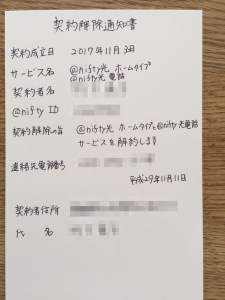 契約解除通知書
契約成立日 2017年11月3日
サービス名 @nifty光 ホームタイプ
@nifty光 電話
契約者名
@nifty ID
契約解除の旨 @nifty光 ホームタイプと@nifty光電話
サービスを解約します
連絡先電話番号
平成29年11月11日
契約者住所
氏 名